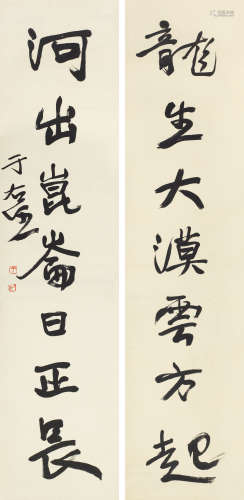 龍生大漠雲方起
河出崑崙日正長
于右任